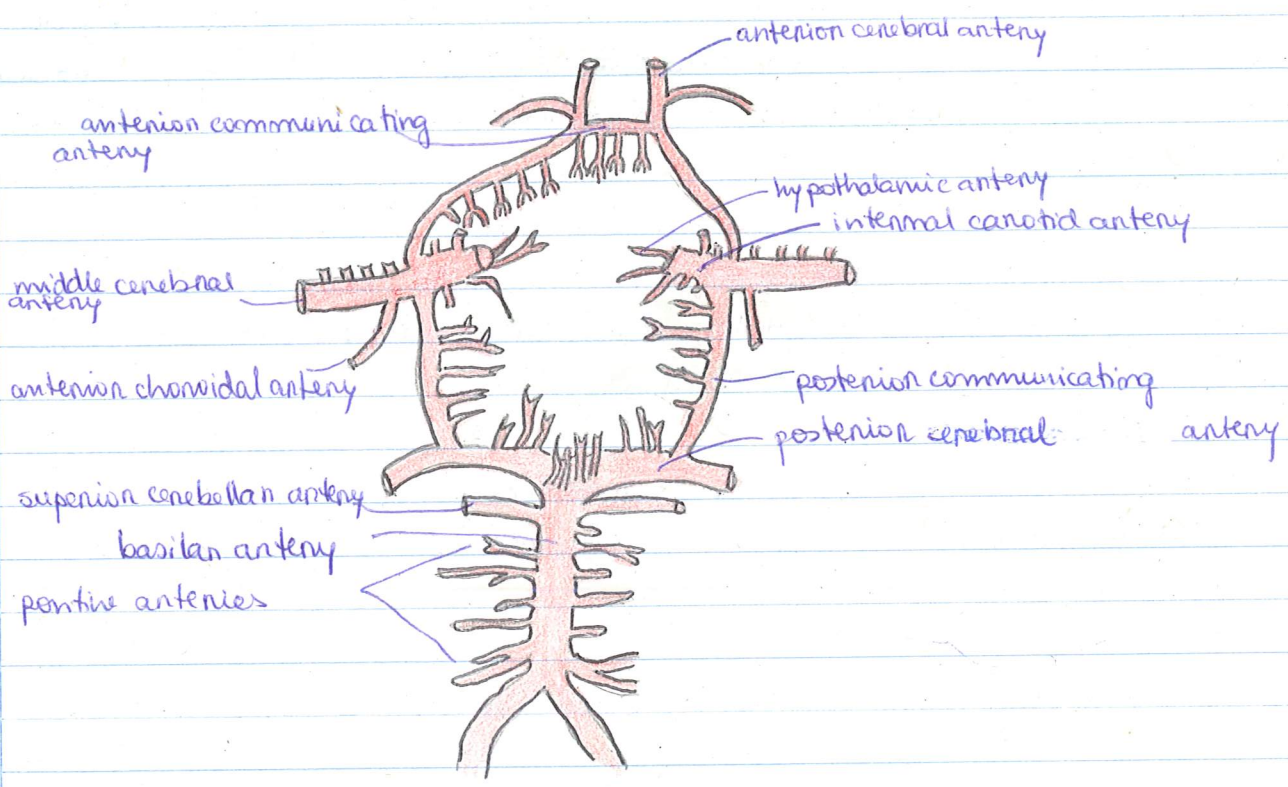 anterior cerebral artery
anterior communicating
artery
hypothalamic artery
internal carotid artery
middle cerebral
artery
anterior choroidal artery
posterior communicating
artery
posterior cerebral
superior cerebellar artery
basilar artery
pontine arteries